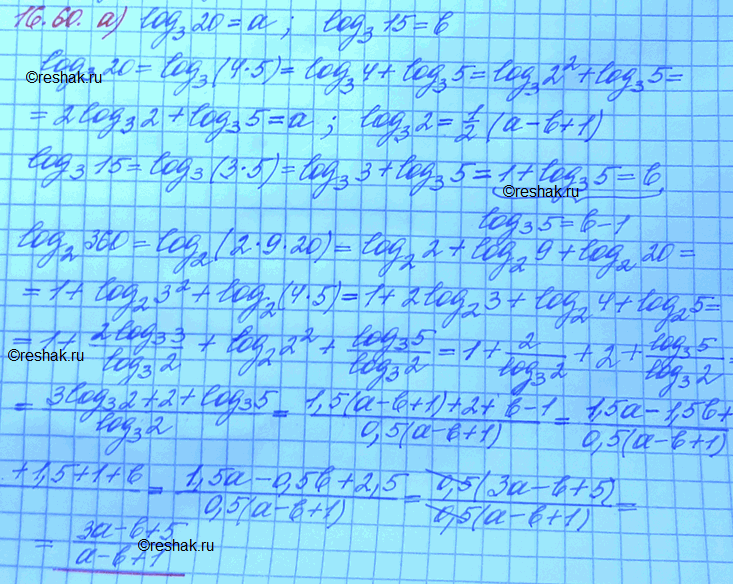 16.60. а) log₃20=a; log₃15=b
log₃20=log₃(4·5)=log₃4+log₃5=log₃2²+log₃5=
©reshak.ru
=2log₃2+log₃5=a; log₃2=1/2(a-b+1)
log₃15=log₃(3·5)=log₃3+log₃5=1+log₃5=b
©reshak.ru
log₃5=b-1
log₂360=log₂(2·9·20)=log₂2+log₂9+log₂20=
=1+log₂3²+log₂(4·5)=1+2log₂3+log₂4+log₂5=
=1+2log₃3/log₃2+log₂2²+log₃5/log₃2=1+2/log₃2+2+log₃5/log₃2=
©reshak.ru
=3log₃2+2+log₃5/log₃2=1,5(a-b+1)+2+b-1/0,5(a-b+1)=1,5a-1,5b+/0,5(a-b+1)
+1,5+1+b=1,5a-0,5b+2,5/0,5(a-b+1)=0,5(3a-b+5)/0,5(a-b+1)=
=3a-b+5/a-b+1
©reshak.ru